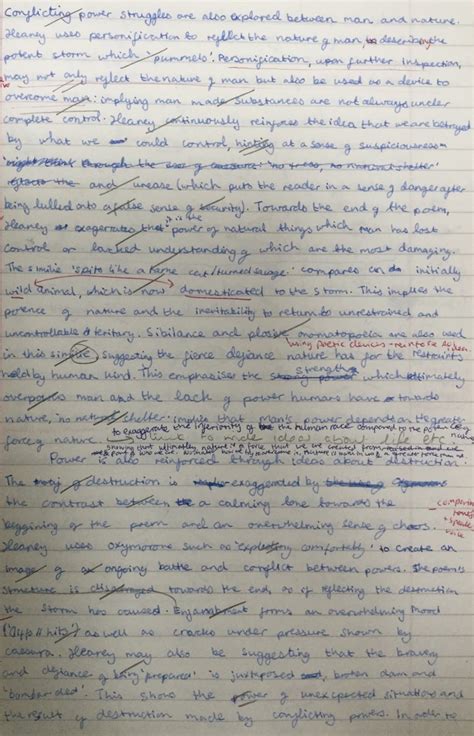 Conflicting power struggles are also explored between man and nature.
Heaney uses personification to reflect the nature of man, to describe the
potent storm which 'pummels'. Personification, upon further inspection,
may not only reflect the nature of man but also be used as a device to
overcome man: implying man made substances are not always under
complete control. Heaney continuously reinforces the idea that we are betrayed
by what we could control, hinting at a sense of suspiciousness
might think through the use of caesura: 'no trees, no natural shelter'
and unease (which puts the reader in a sense of danger after
being lulled into a false sense of security). Towards the end of the poem,
Heaney exagerates that it is the power of natural things which man has lost
control or lacked understanding of which are the most damaging.
The similie 'spits like a tame cat / turned savage' compares an initially
wild animal, which is now domesticated to the storm. This implies the
potence of nature and the inevitability to return to unrestrained and
uncontrollable teritary. Sibilance and plosive onomatopoeia are also used
using poetic devices
in this similie suggesting the fierce defiance nature has for the restraints
held by human kind. This emphasises the strength which ultimately
overpowers man and the lack of power humans have towards
nature, 'no natural shelter' implies that man's power depends on the greater
force of nature.
to exaggerate the inferiority of the human race compared to the potency of nature
link to wider ideas about life etc
Power is also reinforced through ideas about destruction.
The of destruction is exaggerated by
the contrast between a calming tone towards the
beggining of the poem and an overwhelming sense of chaos.
Heaney uses oxymorons such as 'exploding comfortably' to create an
image of an ongoing battle and conflict between powers. The poem's
structure is towards the end as if reflecting the destruction
the storm has caused. Enjambment forms an overwhelming mood
as well as cracks under pressure shown by
caesura. Heaney may also be suggesting that the bravery
and defiance of being 'prepared' is juxtaposed broken down and
'bombarded'. This shows the power of unexpected situations and
the result of destruction made by conflicting powers. In order to